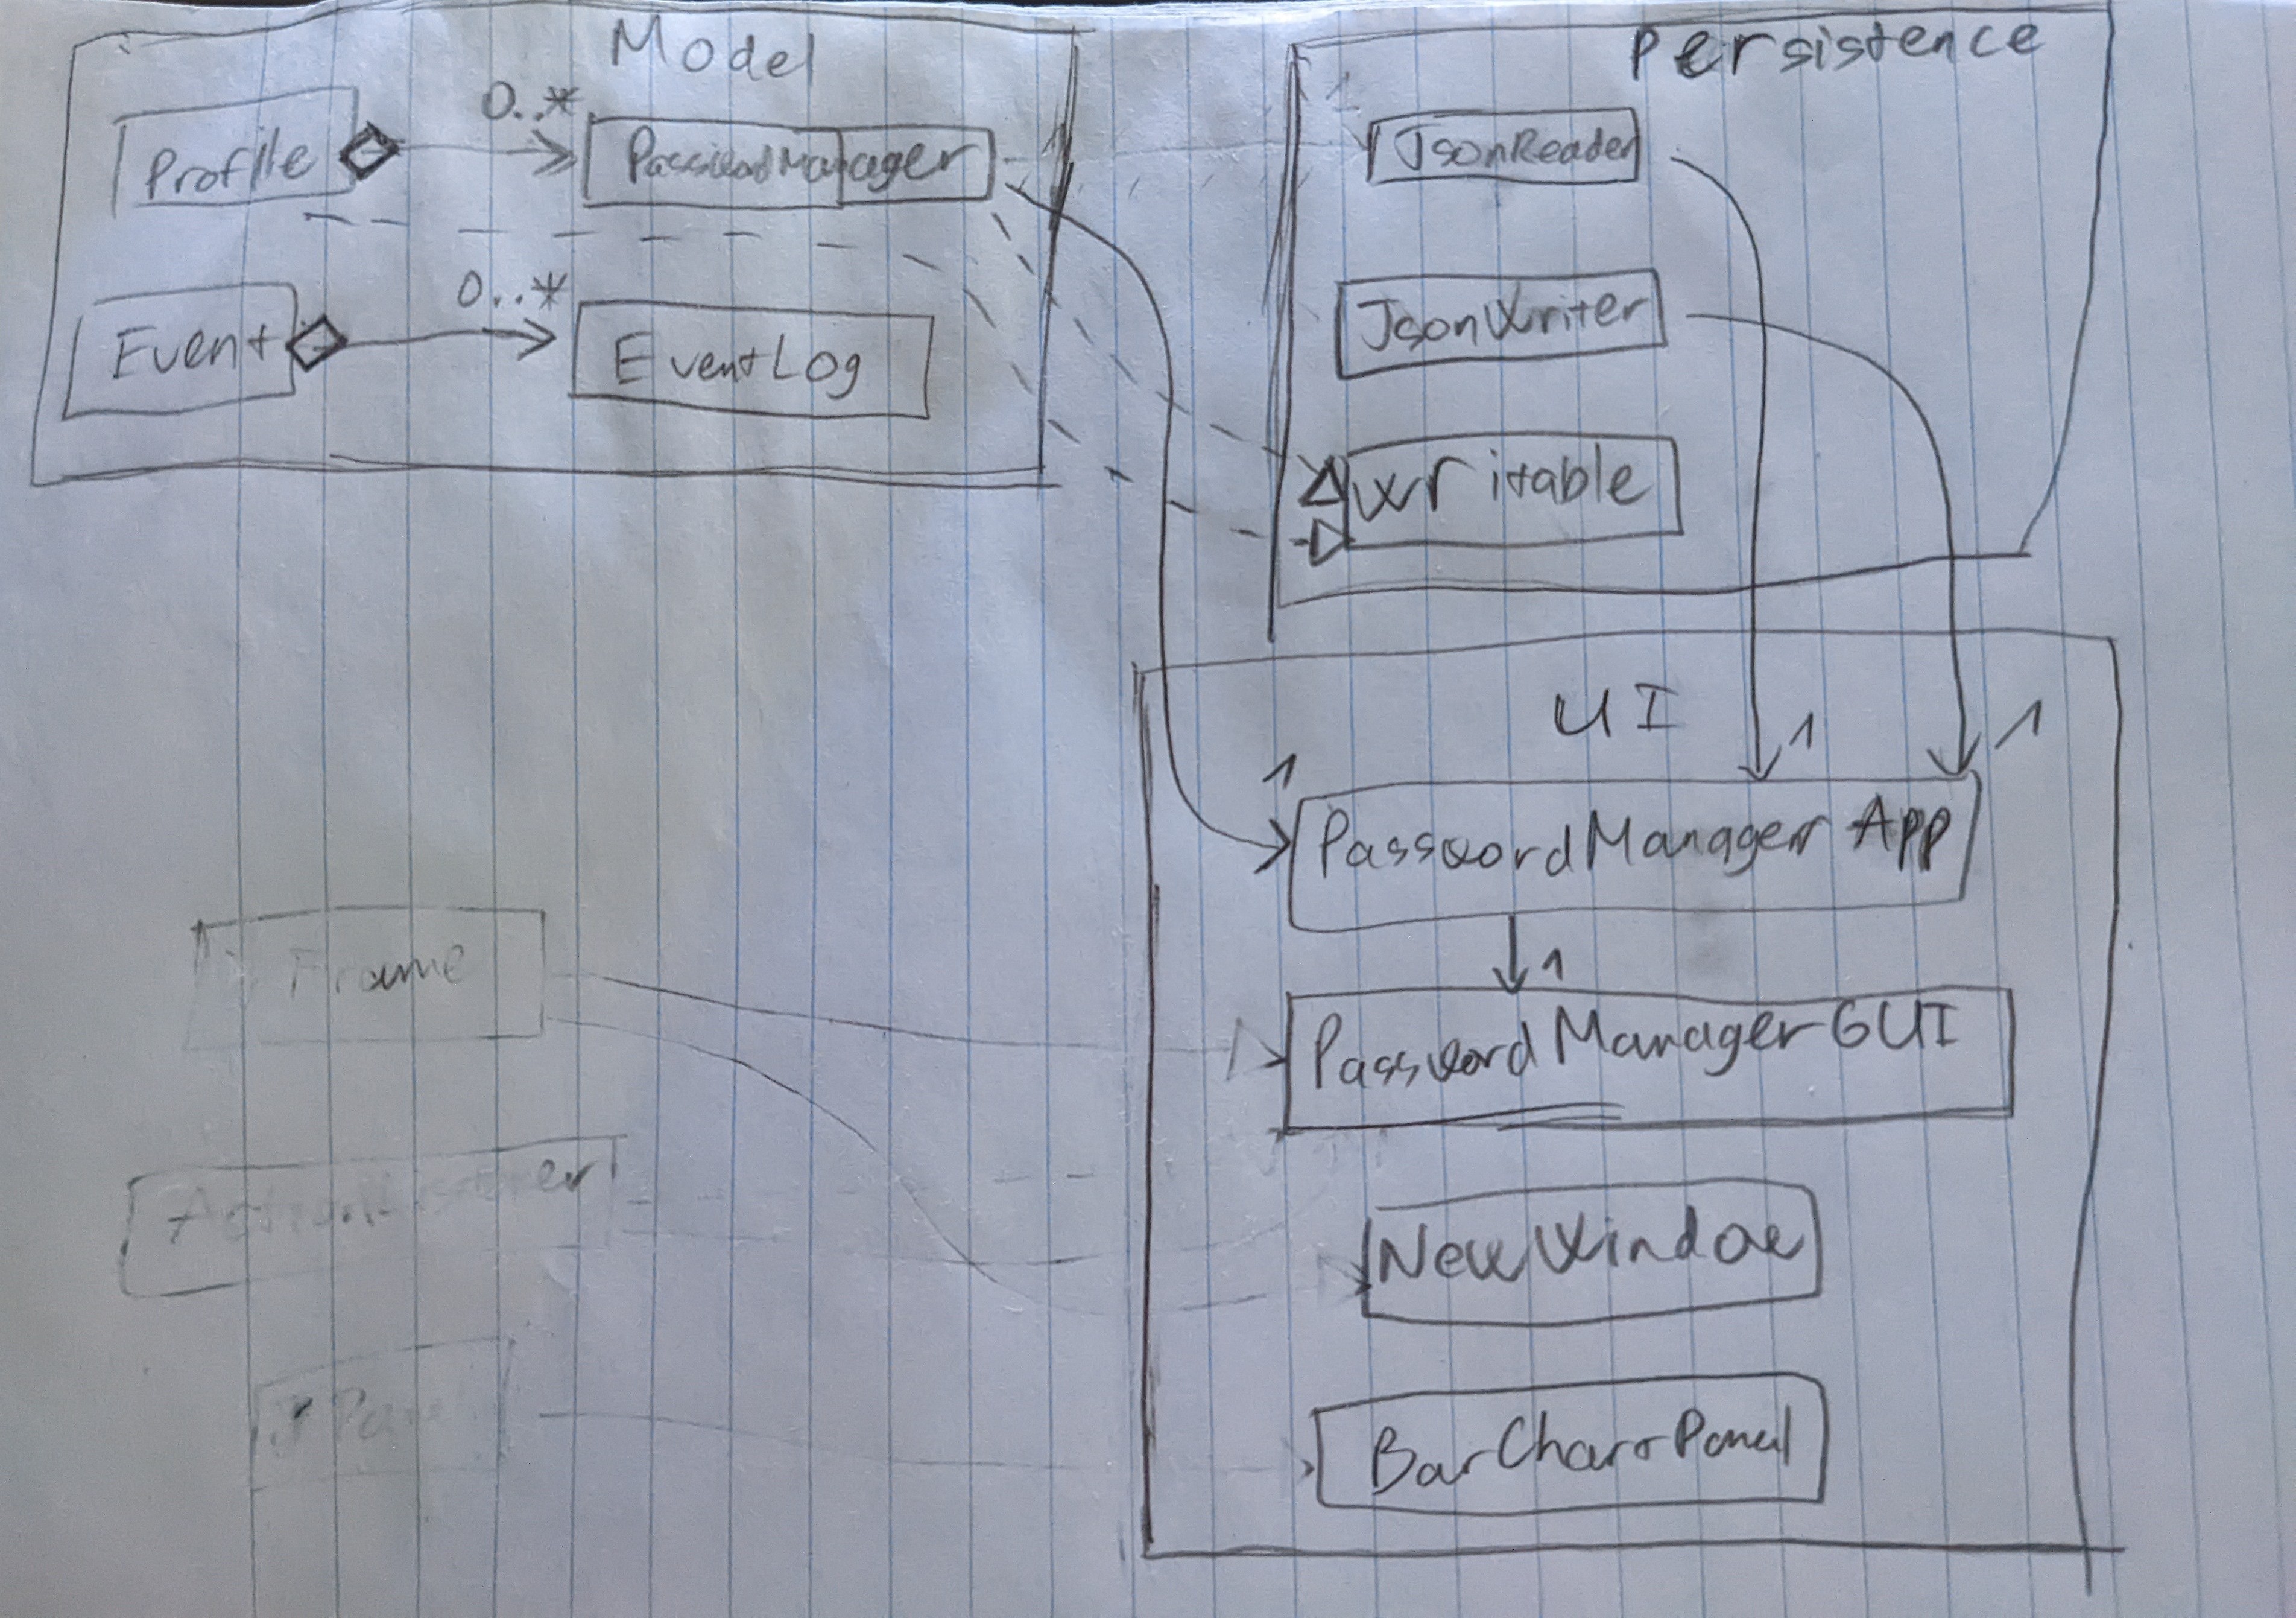 Model
Profile
0..*
PasswordManager
Event
0..*
EventLog
Persistence
JsonReader
JsonWriter
Writable
UI
1
1
1
PasswordManager App
1
PasswordManagerGUI
NewWindow
BarChartPanel
Frame
ActionListener